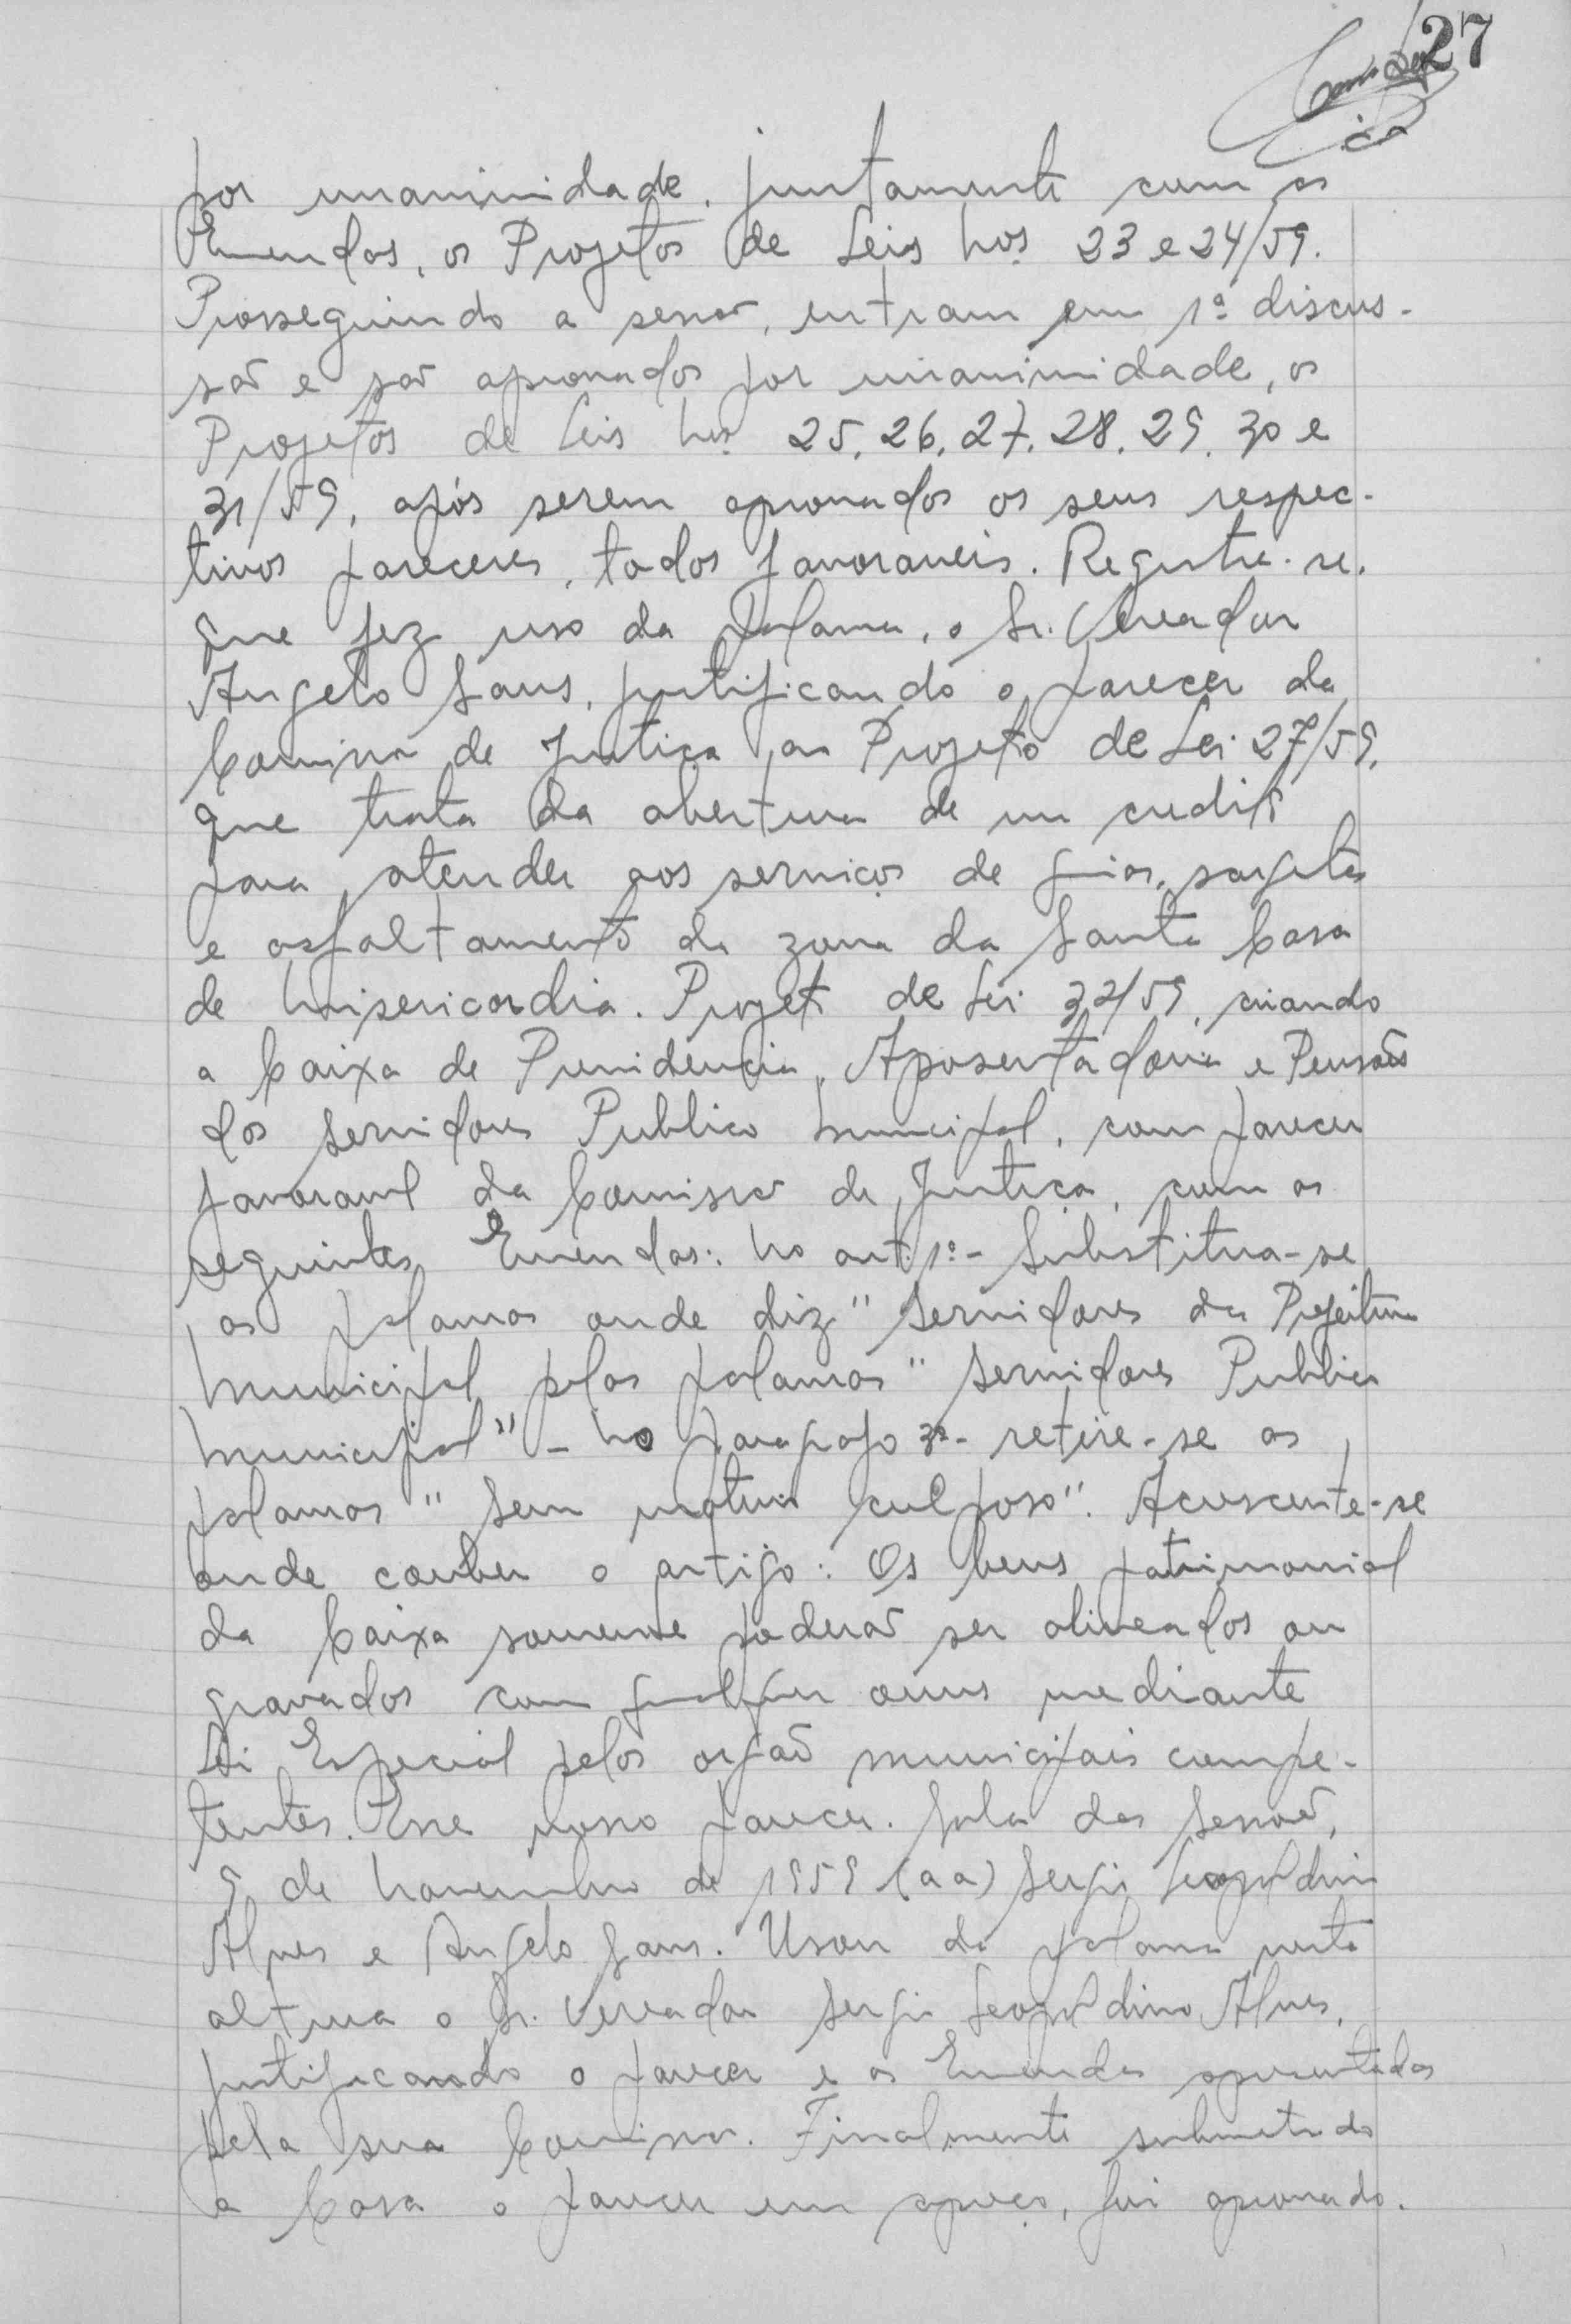 27
por unanimidade, juntamente com as
Emendas, os Projetos de Leis nos 23 e 24/59.
Prosseguindo a sessão, entram em 1ª discus-
são e são aprovados por unanimidade, os
Projetos de Leis nos 25, 26, 27, 28, 29, 30 e
31/59, após serem aprovados os seus respec-
tivos pareceres, todos favoraveis. Registre-se,
que fez uso da palavra, o Sr. Vereador
Angelo Sans, justificando o parecer da
Comissão de Justiça ao Projeto de Lei 27/59,
que trata da abertura de um credito
para atender aos serviços de guias, sargetas
e asfaltamento da zona da Santa Casa
de Misericordia. Projeto de Lei 32/59, criando
a Caixa de Previdencia, Aposentadoria e Pensões
dos Servidores Publico Municipal, com parecer
favoravel da Comissão de Justiça, com as
seguintes Emendas: No art. 1º - Substitua-se
as palavras onde diz "Servidores da Prefeitura
Municipal pelas palavras "Servidores Publico
Municipal" - No paragrafo 3º - retire-se as
palavras "Sem motivo culposo". Acrescente-se
onde couber o artigo: Os bens patrimonial
da Caixa somente poderão ser alineados ou
gravados com qualquer onus mediante
Lei Especial pelos orgão municipais compe-
tentes. Esse nosso parecer. Sala das Sessões,
9 de Novembro de 1959 (aa) Sergio Leopoldino
Alves e Angelo Sans. Usou da palavra nesta
altura o Sr. Vereador Sergio Leopoldino Alves,
justificando o parecer e as Emendas apresentadas
pela sua Comissão. Finalmente submetido
a Casa o parecer em apreço, foi aprovado.